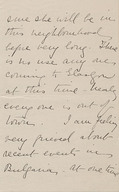 sure she will be in
this neighbourhood
before very long. There
is no use any one
coming to Glasgow
at this time. Nearly
everyone is out of
town. I am feeling
very grieved about
recent events in
Bulgaria. At one time